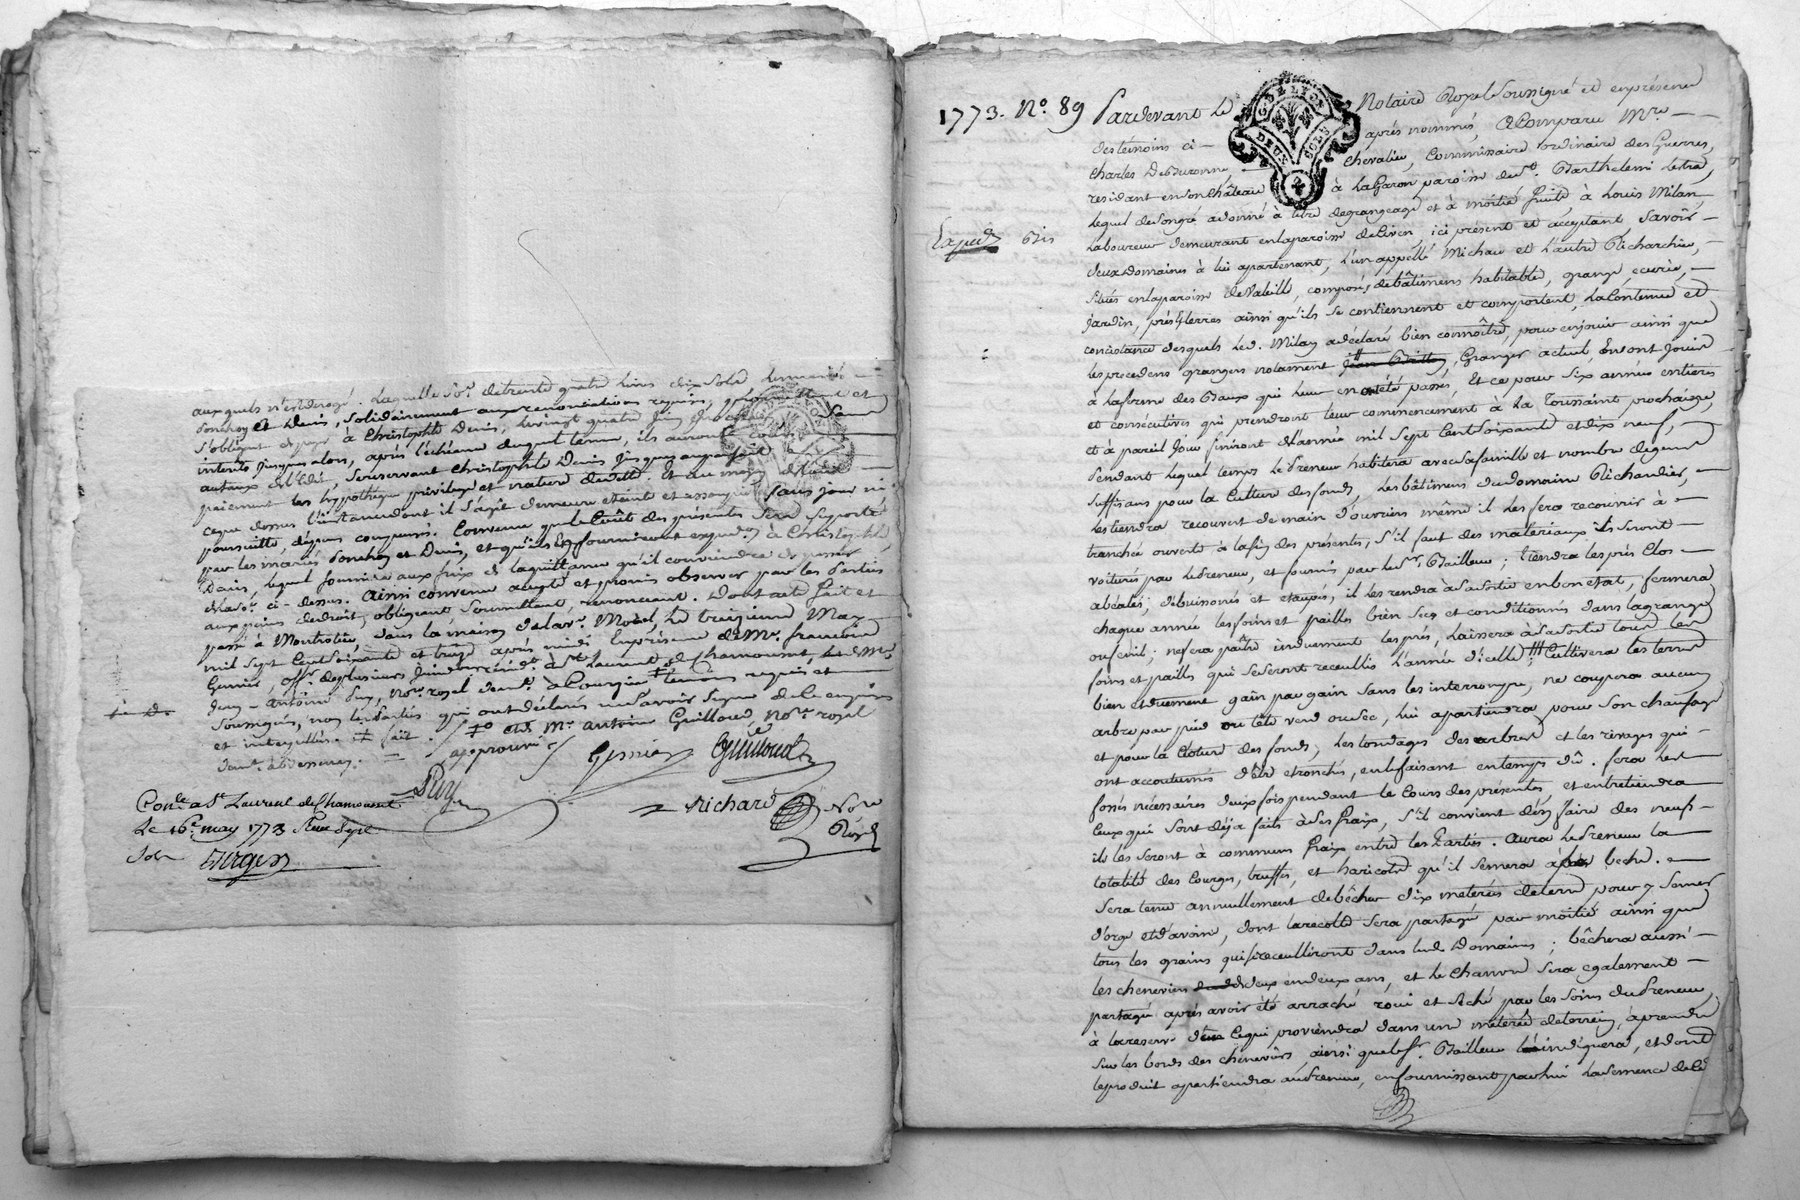 auxquels n'est derogé. Laquelle so.e de trente quatre livres dix sols, lesmariés
Ponchon et Denis, solidairement aux renonciations requises, promettent et
s'obligent de payer à Christophle Denis, le vingt quatre juin
intérêts jusques alors, après l'échéance duquel terme, ils auront cours
autaux de l'Edit, se reservant Christophle Denis jusques au parfait
paiement les hypothèque privilege et nature de dette. Et au moyen de
ceque dessus l'instance dont il s'agit demeure eteinte et assoupie sans pour
poursuitte, dépens compensés. Convenu que le Coût des présentes sera supporté
par les mariés Ponchon et Denis, et qu'ils en fourniront à Christophle
Denis, lequel fournira aux frix de la quittance qu'il conviendra de passer
de la so.e ci-dessus. Ainsi convenu accepté et promis observer par les Parties
aux peines de droit, obligeant, soumettant, renonceant. Dont acte fait et
passé à Montrotier, dans la maison de la ve. Morel, le treizieme May
mil sept Cent soixante et treize après midi En présence de Me. françois
Gonnier, off.r de plusieurs Juridictions résid.t à St Laurent de Chamousset
Jean-Antoine Puy, No.re royal dem.t témoins requis et
soussignés, non les Parties qui ont déclarés ne savoir signer de ce enquises
et interpellées. fait. et Me. antoine Guilloud, No.re royal
approuvé
Gonnier Guilloud
Puy
Richard No.re
Roy.l
Con.le a St Laurent de Chamousset
Le 16e. may 1773 Reçu Sept
Sols Dirgen
1773. No. 89 Pardevant le Notaire Royal soussigné et en présence
des témoins ci- après nommés, A Comparu Mre
Charles Chevalier, Commissaire ordinaire des Guerres,
residant en son Château à La Garon paroisse de St. Barthelemi Letra,
Lequel de son gré a donné à titre de grangeage et à moitié fruits à Louis Milan
Laboureur demeurant en la paroisse de Civen, ici présent et acceptant savoir
Exped. Bis
deux domaines à lui apartenant, l'un appellé Michau et l'autre Richarchier,
situés en la paroisse de Valeille, composés de bâtimens habitable, grange, ecurie,
jardin, prés & terres ainsi qu'ils se contiennent et comportent, la Contenue et
consistance desquels led. Milan a déclaré bien connoître, pour en jouir ainsi que
les precedens grangers notament Granger actuel, En ont joui
à la forme des Baux qui leur en ont été passés, Et ce pour six années entieres
et consécutives qui prendront leur commencement à la Toussaint prochaine,
et à pareil Jour finiront d'année mil sept Cent soixante et dix neuf,
Pendant lequel temps le Preneur habitera avec sa famille et nombre de gens
suffisans pour la Culture des fonds, Les bâtimens du domaine Richardier,
les tiendra recouvert de main d'ouvriers même il les fera recouvrir à
tranchée ouverte à la fin des présentes, s'il faut des materiaux ils seront
voiturés par le Preneur, et fournis par le sr. Bailleur ; tiendra les prés Clos
abéalés, débuissonés et étaupés, il les rendra à sa sortie en bon etat, fermera
chaque année les foins et pailles bien secs et conditionnés dans la grange
ou fenil ; ne fera paître induement les prés, Laissera à sa sortie tous les
foins et pailles qui se seront recueillis l'année d'icelle Cultivera les terres
bien et duement gain par gain sans les interrompre, ne coupera aucun
arbre par pied ou tête verd ou sec, lui apartiendra pour son chauffage
et pour la Cloture des fonds, les tondages des arbres et les rivages qui
ont accoutumés d'etre etronchés, en le faisant en temps dû. fera les
fossés nécessaires deux fois pendant le Cours des présentes et entretiendra
Ceux qui sont déja faits à ses fraix, s'il convient d'en faire des neufs
ils les seront à communs fraix entre les Parties. Aura le Preneur la
totalité des Courges, truffes, et haricots qu'il semera à la beche.
sera tenu annuellement de bêcher dix meterées de terre pour y semer
d'orge et d'avoine, dont la recolte sera partagé par moitié ainsi que
tous les grains qui se recueilliront dans lesd. Domaines ; bêchera aussi
les cheneviers de deux en deux ans, et le chanvre sera egalement
partagé après avoir été arraché roui et seché par les soins du Preneur
à la reserve de ce qui proviendra dans une meterée de terrein, a prendre
sur les bords des chenevirs, ainsi que le sr. Bailleur indiquera, et dont
le produit apartiendra au Preneur, en fournissant par lui la semence de la